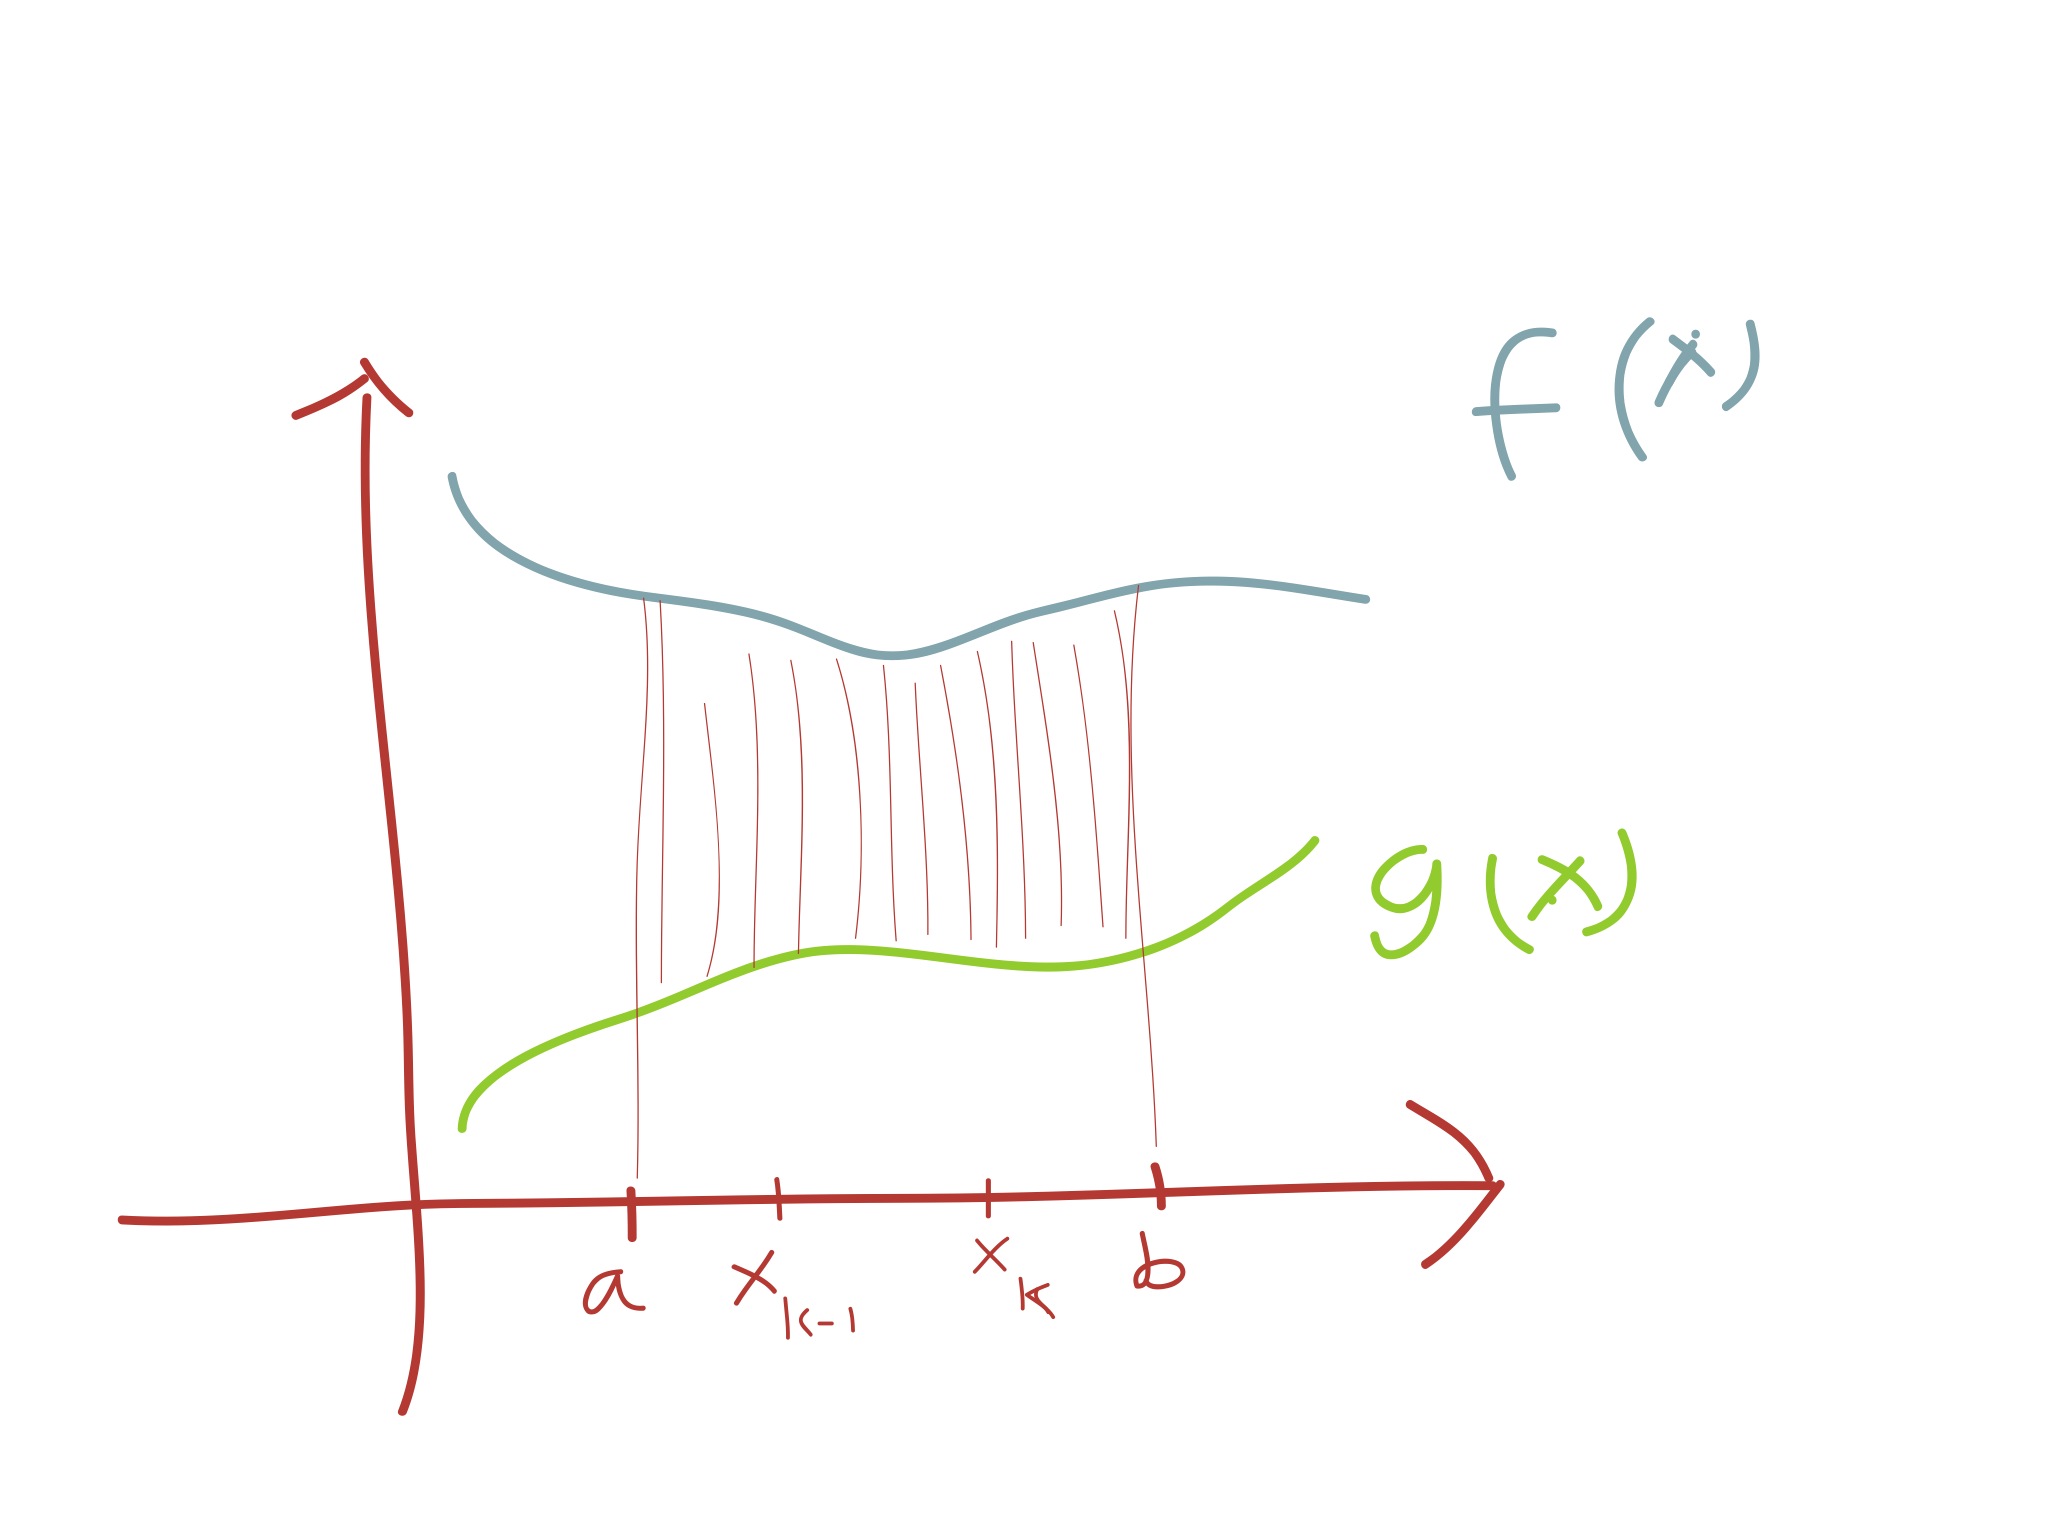 f(x)
g(x)
a x_{k-1} x_k b